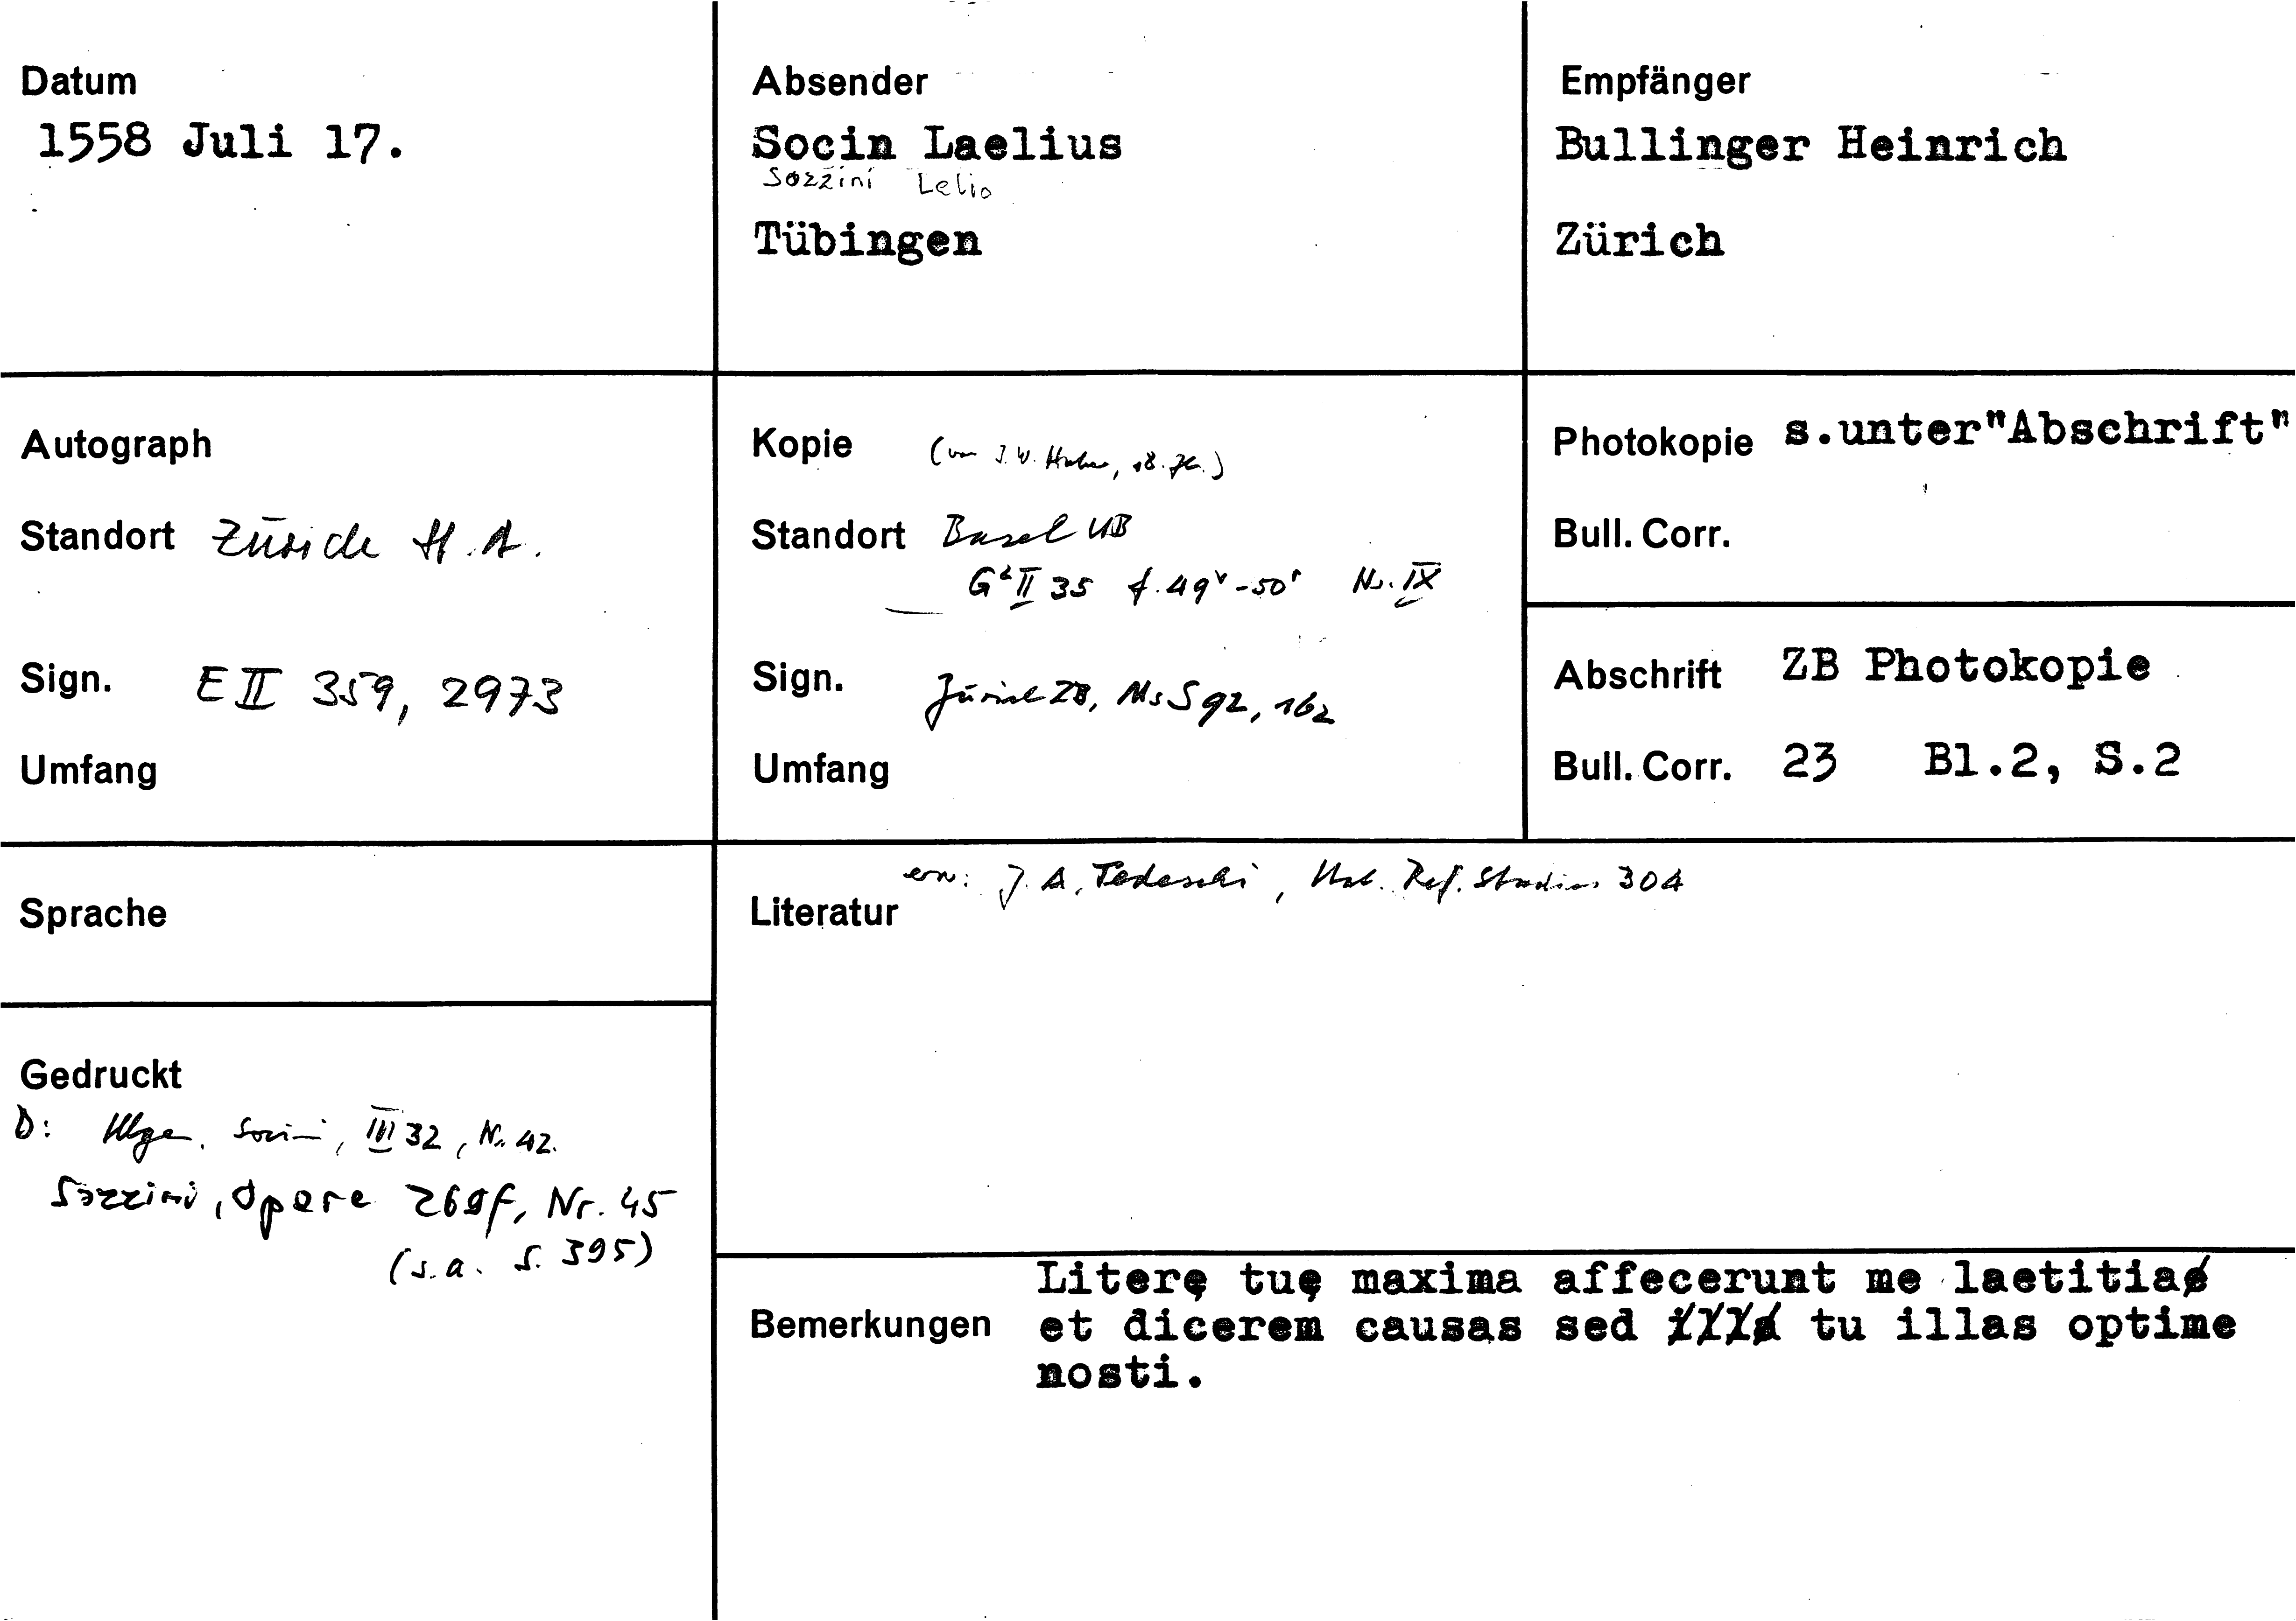 Datum
1558 Juli 17.
Absender
Socin Laelius
Sozzini Lelio
Tübingen
Empfänger
Bullinger Heinrich
Zürich
Autograph
Standort Zürich H.A.
Sign. E II 359, 2973
Umfang
Kopie (von J.W. Huber, 18. Jh.)
Standort Basel UB
G² II 35 f. 49v-50r Nr. IX
Sign. Zürich ZB, Ms S 92, 162
Umfang
Photokopie s.unter"Abschrift"
Bull. Corr.
Abschrift ZB Photokopie
Bull. Corr. 23 Bl.2, S.2
Sprache
Literatur erw: J. A. Tedeschi, Ital. Ref. Studies 304
Gedruckt
D: Illgen. Socini, III 32, Nr. 42.
Sozzini, Opere 269f, Nr. 45
(s.a. S. 395)
Bemerkungen
Literę tuę maxima affecerunt me laetitia
et dicerem causas sed tu illas optime
nosti.